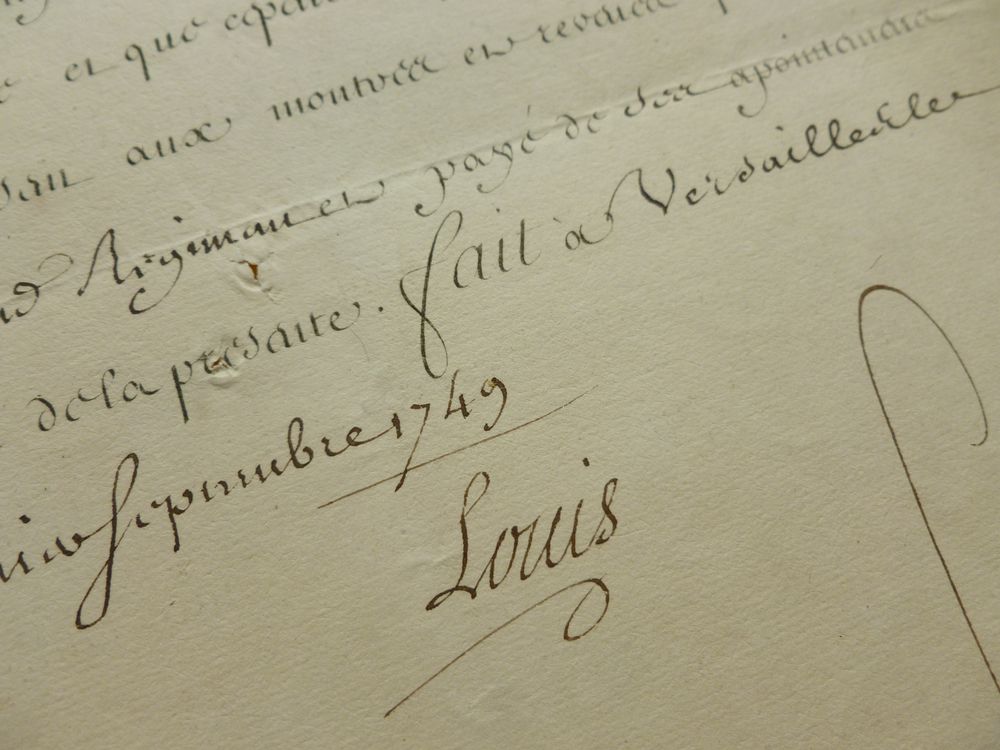 et que
aux montres et reveües
Regiment et payé de ses apointemens
de la presente. fait à Versailles le
septembre 1749
Louis